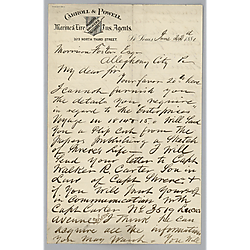 CARROLL & POWELL
Marine & Fire Ins. Agents.
St Louis June 24th 1881
Morrison Foster Esqr
Allegheny City Pa
My dear Sir
Your favor 20th here
I cannot furnish you
the details you require
in regard to the Enterprise
Voyage in 1814 & 15. I Will Send
You a slip Cut from the
Papers publishing a Sketch
of Shreve's life - I Will
Send Your letter to Capt
Walker R. Carter Son in
Law of Capt Shreve &
if You Will put Yourself
in Communication With
Capt Carter No 3509
Avenue I Think he Can
Require all the information
You May Want. You Will